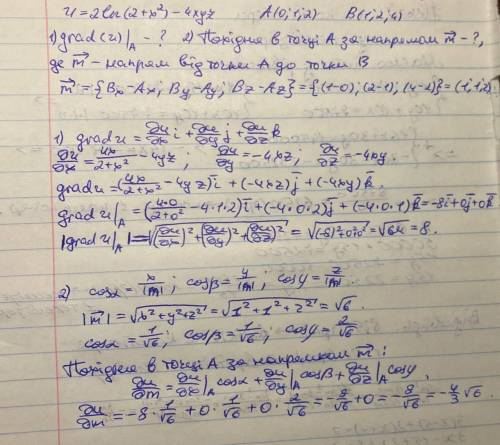 u = 2ln(2+x²) − 4xyz   A(0;1;2)   B(1;2;4)
1) grad(u)|_A − ?   2) Похідна в точці A за напрямом m⃗ − ?,
де m⃗ − напрям від точки A до точки B
m⃗ = {Bx−Ax; By−Ay; Bz−Az} = {(1−0); (2−1); (4−2)} = (1;1;2).
1) grad u = ∂u/∂x i + ∂u/∂y j + ∂u/∂z k
∂u/∂x = 4x/(2+x²) − 4yz ; ∂u/∂y = −4xz ; ∂u/∂z = −4xy.
grad u = (4x/(2+x²) − 4yz) i̅ + (−4xz) j̅ + (−4xy) k̅
grad u|_A = (4·0/(2+0²) − 4·1·2) i̅ + (−4·0·2) j̅ + (−4·0·1) k̅ = −8i̅ + 0j̅ + 0k̅
|grad u|_A| = √((∂u/∂x)² + (∂u/∂y)² + (∂u/∂z)²) = √((−8)²+0²+0²) = √64 = 8.
2) cosα = x/|m⃗| ; cosβ = y/|m⃗| ; cosγ = z/|m⃗|
|m⃗| = √(x²+y²+z²) = √(1²+1²+2²) = √6
cosα = 1/√6 ; cosβ = 1/√6 ; cosγ = 2/√6
Похідна в точці A за напрямком m⃗ :
∂u/∂m⃗ = ∂u/∂x|_A cosα + ∂u/∂y|_A cosβ + ∂u/∂z|_A cosγ.
∂u/∂m⃗ = −8 · 1/√6 + 0 · 1/√6 + 0 · 2/√6 = −8/√6 + 0 = −8/√6 = −4/3 √6